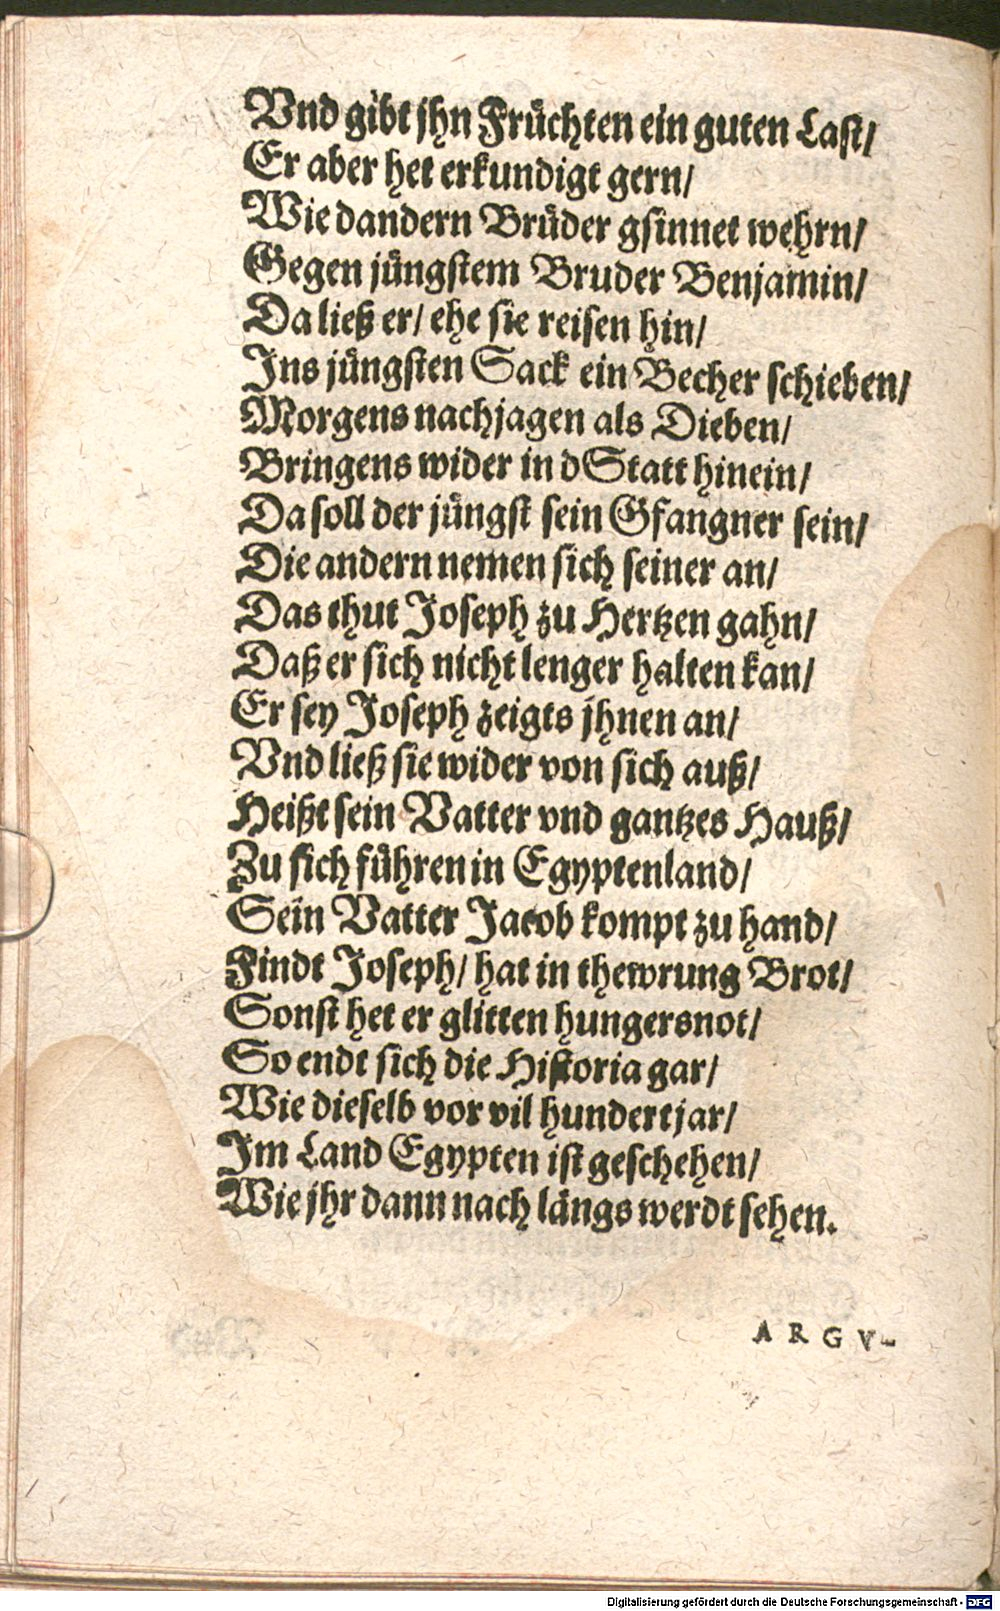 Vnd gibt jhn Früchten ein guten Last/
Er aber het erkundigt gern/
Wie dandern Brüder gsinnet wehrn/
Gegen jüngstem Bruder Benjamin/
Da ließ er/ ehe sie reisen hin/
Ins jüngsten Sack ein Becher schieben/
Morgens nachjagen als Dieben/
Bringens wider in d Statt hinein/
Da soll der jüngst sein Gfangner sein/
Die andern nemen sich seiner an/
Das thut Joseph zu Hertzen gahn/
Daß er sich nicht lenger halten kan/
Er sey Joseph zeigts jhnen an/
Vnd ließ sie wider von sich auß/
Heißt sein Vatter vnd gantzes Hauß/
Zu sich führen in Egyptenland/
Sein Vatter Jacob kompt zu hand/
Findt Joseph/ hat in thewrung Brot/
Sonst het er glitten hungersnot/
So endt sich die Historia gar/
Wie dieselb vor vil hundert jar/
Im Land Egypten ist geschehen/
Wie jhr dann nach längs werdt sehen.
ARGV-
Digitalisierung gefördert durch die Deutsche Forschungsgemeinschaft - DFG